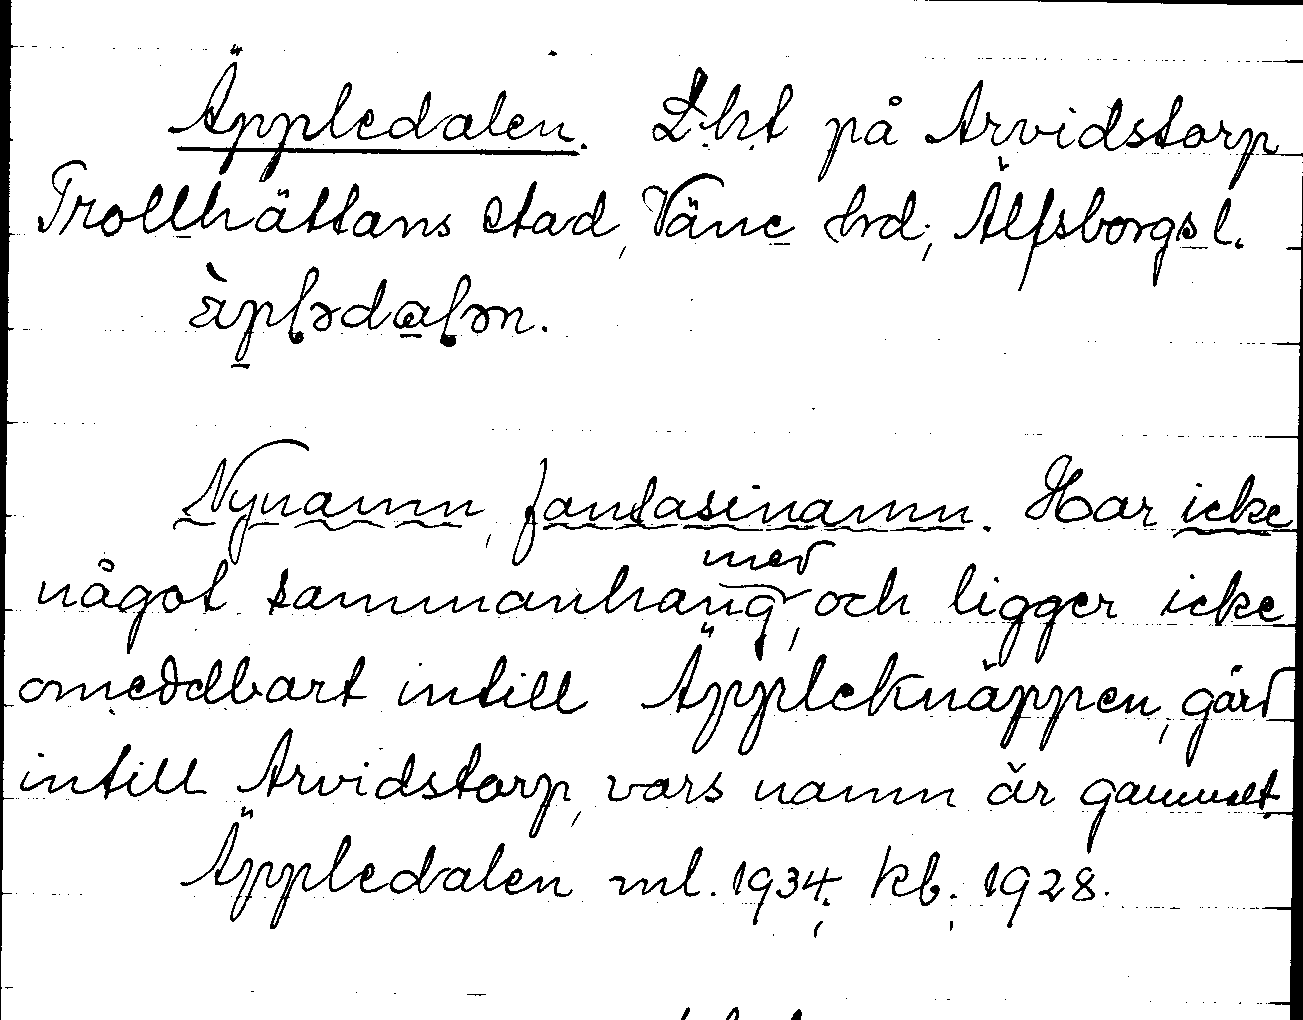 Äppledalen. Lht på Arvidstorp
Trollhättans stad, Väne hrd, Älfsborgs l.
Nynamn, fantasinamn. Har icke
något sammanhang med, och ligger icke
omeddbart intill Äppleknäppen, gård
intill Arvidstorp, vars namn är gammalt.
Äppledalen ml. 1934; kb. 1928.